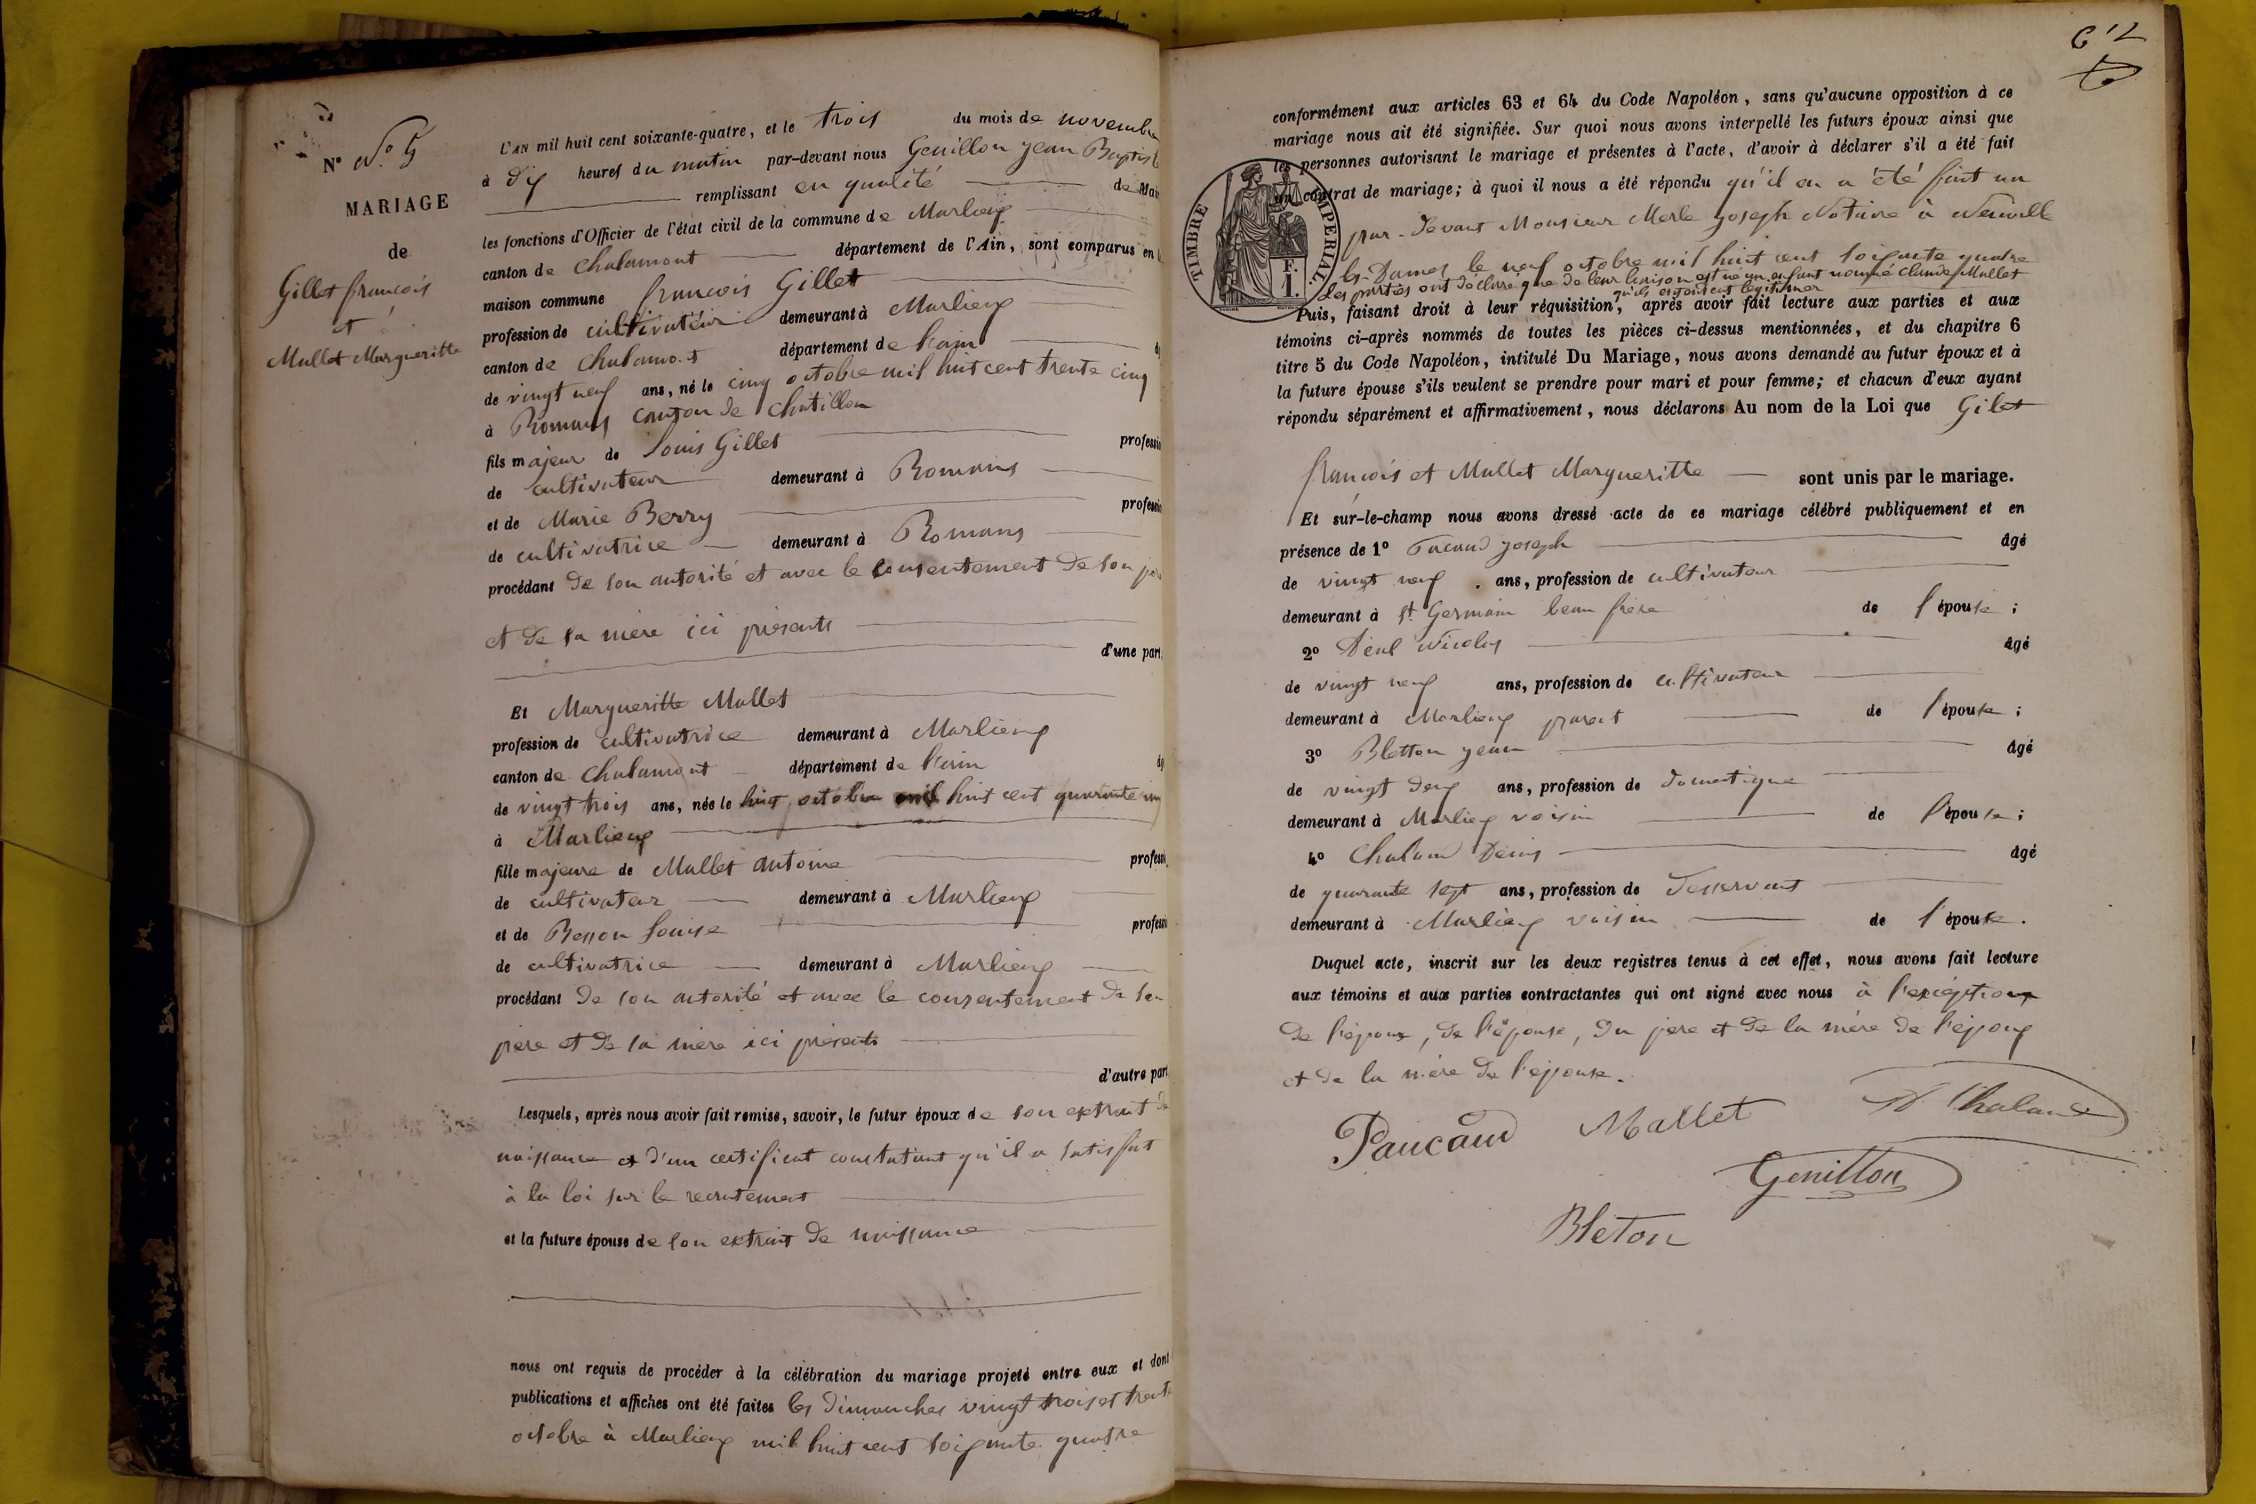 N° N° 5
MARIAGE
de
Gillet françois
et
Mallet Margueritte
L'AN mil huit cent soixante-quatre, et le trois du mois de novembre
à dix heures du matin par-devant nous Genillon Jean Baptiste
remplissant en qualité de Maire
les fonctions d'Officier de l'état civil de la commune de Marlieux
canton de Chalamont département de l'Ain, sont comparus en la
maison commune françois Gillet
profession de cultivateur demeurant à Marlieux
canton de chalamont département de l'ain
de vingt neuf ans, né le cinq octobre mil huit cent trente cinq
à Romans canton de chatillon
fils majeur de Louis Gillet profession
de cultivateur demeurant à Romans
et de Marie Berry profession
de cultivatrice demeurant à Romans
procédant de son autorité et avec le consentement de son père
et de sa mère ici présents
d'une part.
Et Margueritte Mallet
profession de cultivatrice demeurant à Marlieux
canton de chalamont département de l'ain
de vingt trois ans, née le huit octobre mil huit cent quarante un
à Marlieux
fille majeure de Mallet antoine profession
de cultivateur demeurant à Marlieux
et de Besson Louise profession
de cultivatrice demeurant à Marlieux
procédant de son autorité et avec le consentement de son
père et de sa mère ici présents
d'autre part
Lesquels, après nous avoir fait remise, savoir, le futur époux de son extrait de
naissance et d'un certificat constatant qu'il a satisfait
à la loi sur le recrutement
et la future épouse de son extrait de naissance
nous ont requis de procéder à la célébration du mariage projeté entre eux et dont
publications et affiches ont été faites les dimanches vingt trois et trente
octobre à Marlieux mil huit cent soixante quatre
conformément aux articles 63 et 64 du Code Napoléon, sans qu'aucune opposition à ce
mariage nous ait été signifiée. Sur quoi nous avons interpellé les futurs époux ainsi que
les personnes autorisant le mariage et présentes à l'acte, d'avoir à déclarer s'il a été fait
un contrat de mariage; à quoi il nous a été répondu qu'il en a été fait un
TIMBRE IMPERIAL
F.
1.
par-devant Monsieur Merle Joseph Notaire à Neuville
les-Dames le neuf octobre mil huit cent soixante quatre
les parties ont déclaré que de leur liaison est né un enfant nommé Claude Mallet
qu'ils entendent légitimer
Puis, faisant droit à leur réquisition, après avoir fait lecture aux parties et aux
témoins ci-après nommés de toutes les pièces ci-dessus mentionnées, et du chapitre 6
titre 5 du Code Napoléon, intitulé Du Mariage, nous avons demandé au futur époux et à
la future épouse s'ils veulent se prendre pour mari et pour femme; et chacun d'eux ayant
répondu séparément et affirmativement, nous déclarons Au nom de la Loi que Gilet
françois et Mallet Margueritte sont unis par le mariage.
Et sur-le-champ nous avons dressé acte de ce mariage célébré publiquement et en
présence de 1° Pacaud Joseph âgé
de vingt neuf ans, profession de cultivateur
demeurant à St Germain beau frère de l'épouse;
2° Nicolas âgé
de vingt neuf ans, profession de cultivateur
demeurant à Marlieux parent de l'épouse;
3° Bletton Jean âgé
de vingt deux ans, profession de domestique
demeurant à Marlieux voisin de l'épouse;
4° Chaland Denis âgé
de quarante sept ans, profession de Desservant
demeurant à Marlieux voisin de l'épouse.
Duquel acte, inscrit sur les deux registres tenus à cet effet, nous avons fait lecture
aux témoins et aux parties contractantes qui ont signé avec nous à l'exception
de l'époux, de l'épouse, du père et de la mère de l'époux
et de la mère de l'épouse.
Paucaud Mallet D. Chaland
Genillon
Bleton